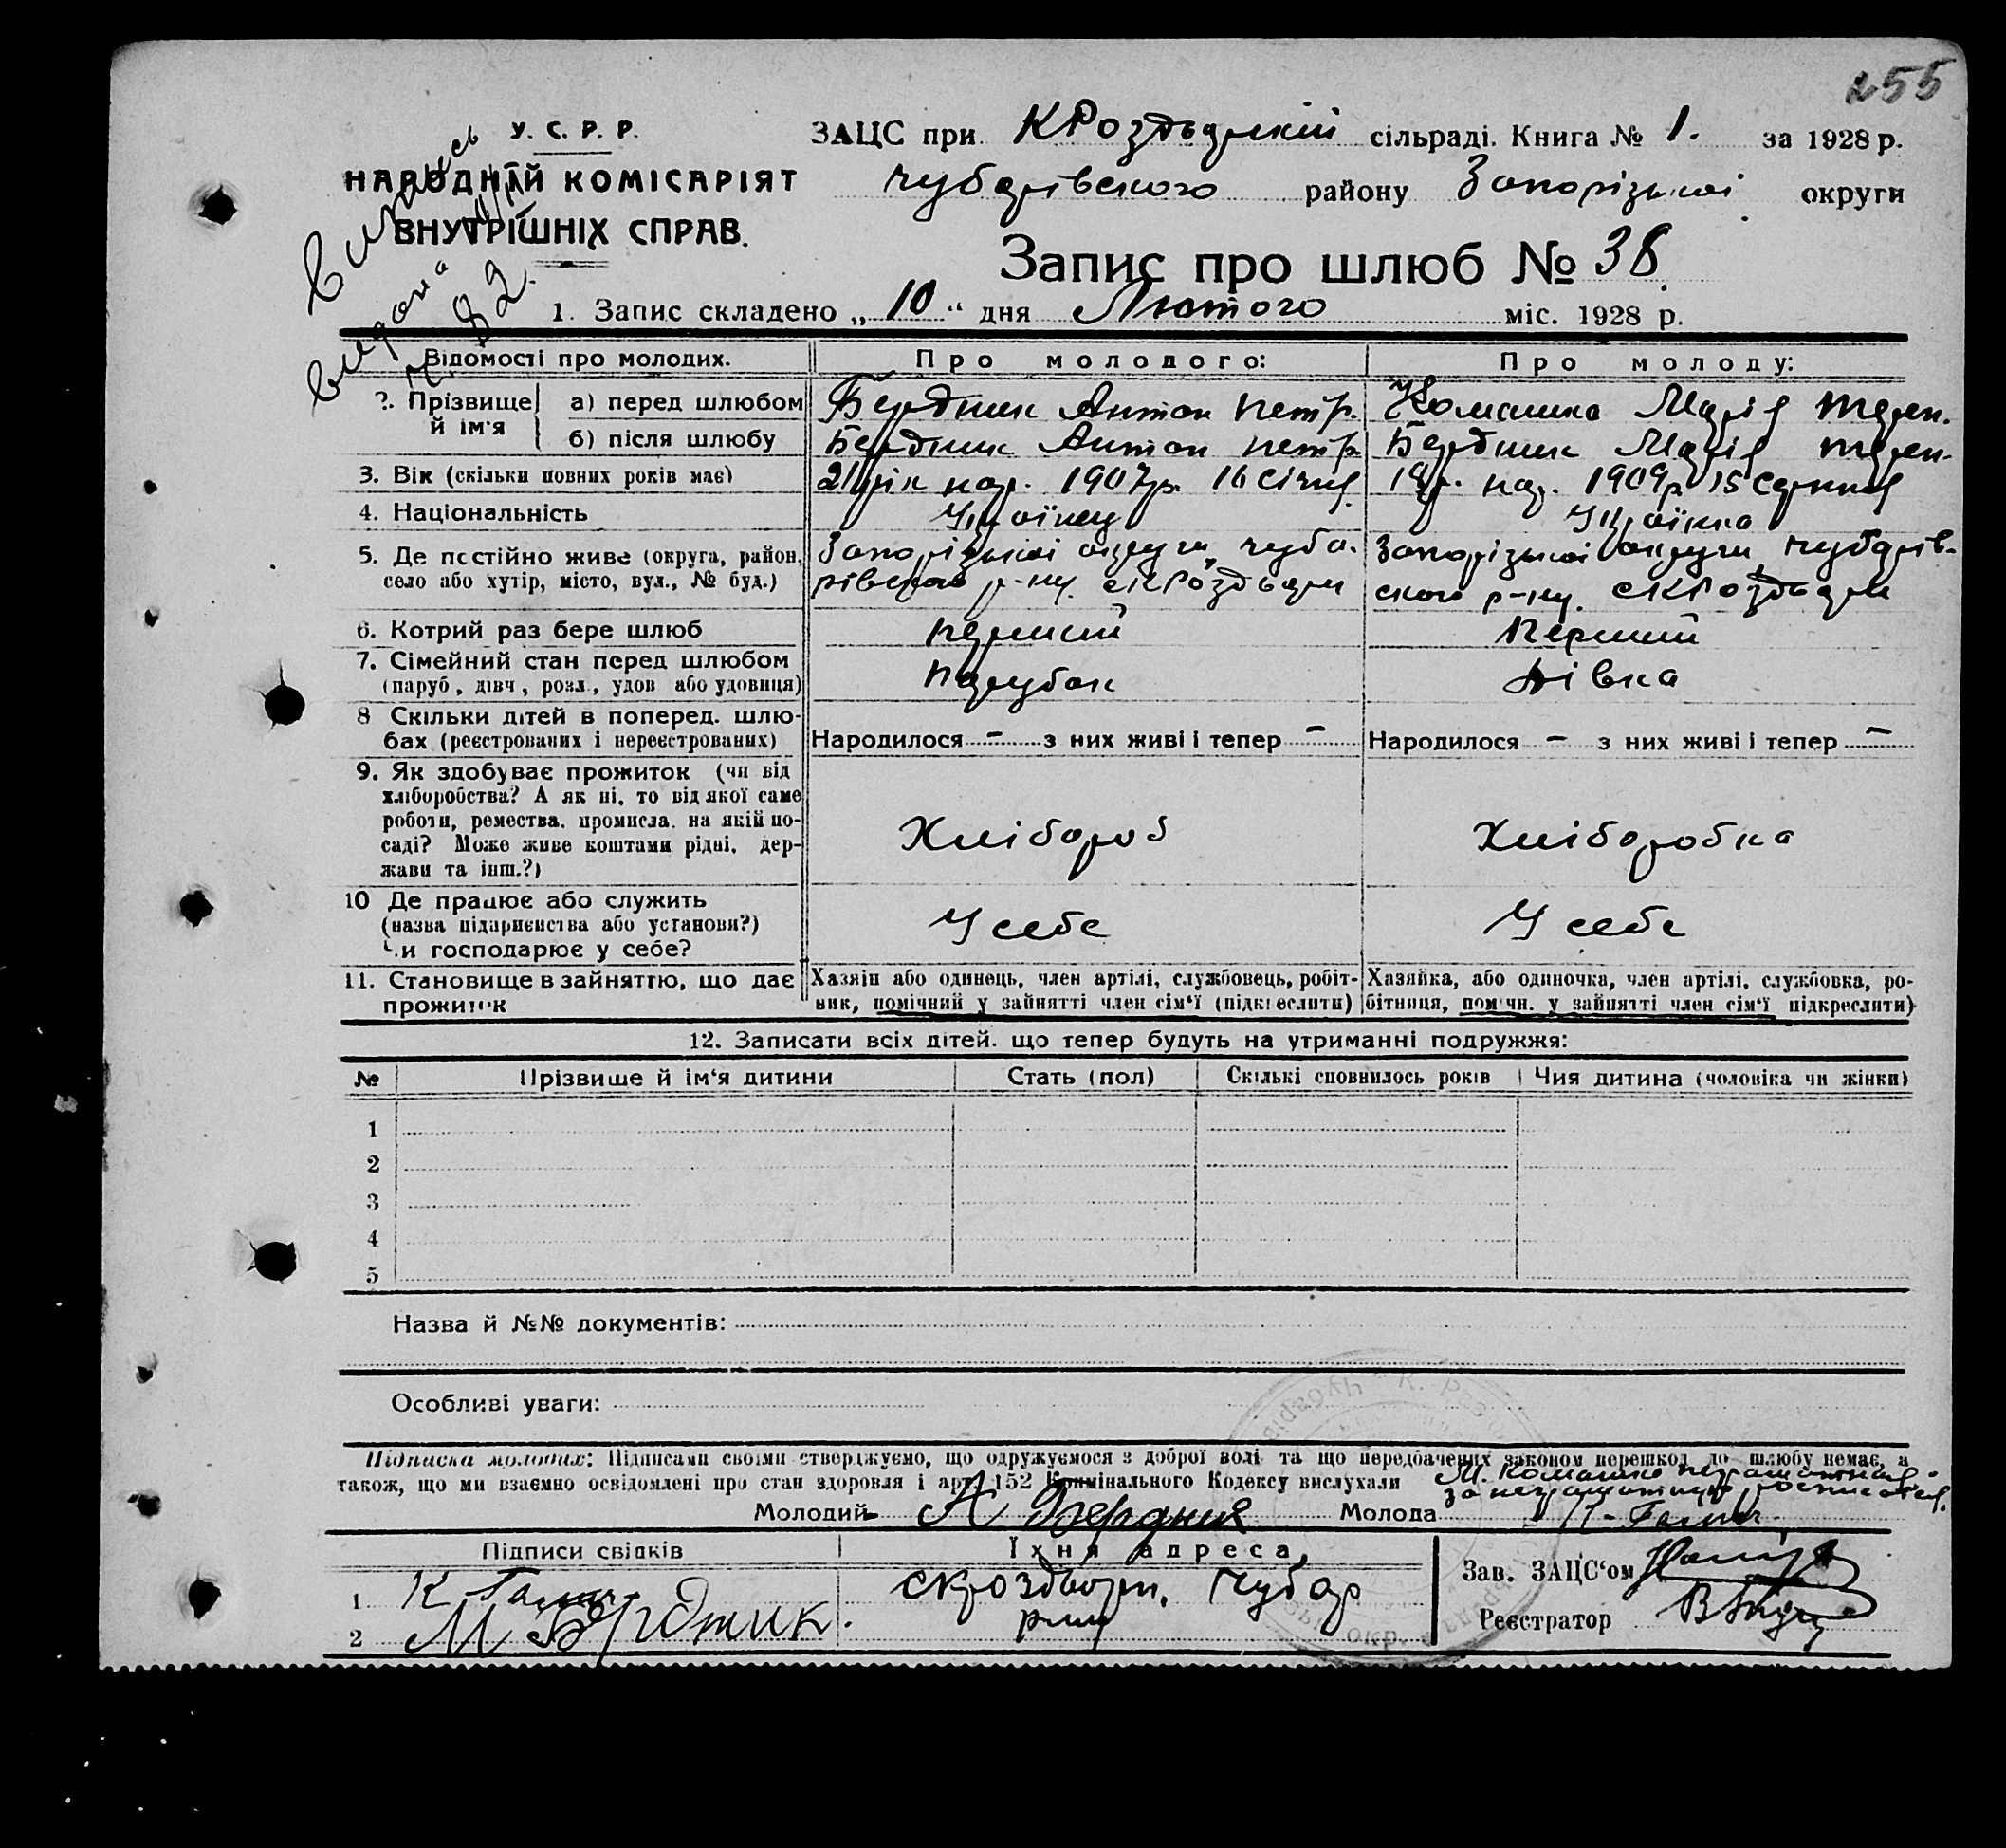 255
У. С. Р. Р.
НАРОДНІЙ КОМІСАРІЯТ
ВНУТРІШНІХ СПРАВ.
ЗАЦС при КРоздорській сільраді. Книга № 1. за 1928 р.
Чубарівського району Запорізької округи
Запис про шлюб № 38.
1. Запис складено „10“ дня Лютого міс. 1928 р.
Відомості про молодих. Про молодого: Про молоду:
2. Прізвище й ім'я а) перед шлюбом Бердник Антон Петр. Комашка Марія Терен.
б) після шлюбу Бердник Антон Петр Бердник Марія Терен.
3. Вік (скільки повних років має) 21 рік нар. 1907 р. 16 січня 18 р. нар. 1909 р 15 серпня
4. Національність Українец Українка
5. Де постійно живе (округа, район, Запорізької округи, Чуба- Запорізької округи, Чубарів-
село або хутір, місто, вул., № буд.) рівського р-ну. сКРоздори ского р-ну. сКРоздори
6. Котрий раз бере шлюб Перший Перший
7. Сімейний стан перед шлюбом Парубок Дівка
(паруб., дівч., розл., удов. або удовиця)
8 Скільки дітей в поперед. шлю-
бах (реєстрованих і нереєстрованих) Народилося - з них живі і тепер - Народилося - з них живі і тепер -
9. Як здобуває прожиток (чи від
хліборобства? А як ні, то від якої саме
роботи, ремества, промисла, на якій по- Хлібороб Хліборобка
саді? Може живе коштами рідні, дер-
жави та інш.?)
10 Де працює або служить
(назва підприємства або установи?) У себе У себе
Чи господарює у себе?
11. Становище в зайняттю, що дає Хазяїн або одинець, член артілі, службовець, робіт- Хазяйка, або одиночка, член артілі, службовка, ро-
прожиток ник, помічний у зайнятті член сім'ї (підкреслити) бітниця, помічн. у зайнятті член сім'ї підкреслити)
12. Записати всіх дітей, що тепер будуть на утриманні подружжя:
№ Прізвище й ім'я дитини Стать (пол) Скількі сповнилось років Чия дитина (чоловіка чи жінки)
1
2
3
4
5
Назва й №№ документів:
Особливі уваги:
Підписка молодих: Підписами своїми стверджуємо, що одружуємося з доброї волі та що передбачених законом перешкод до шлюбу немає, а
також, що ми взаємно освідомлені про стан здоровля і арт. 152 Кримінального Кодексу вислухали М. Комашко неграмотная
за неграмотную
Молодий А Бердник Молода К
Підписи свідків Їхня адреса Зав. ЗАЦС'ом
1 К сКроздори, Чубар
2 М Бердник. р-ну Реєстратор